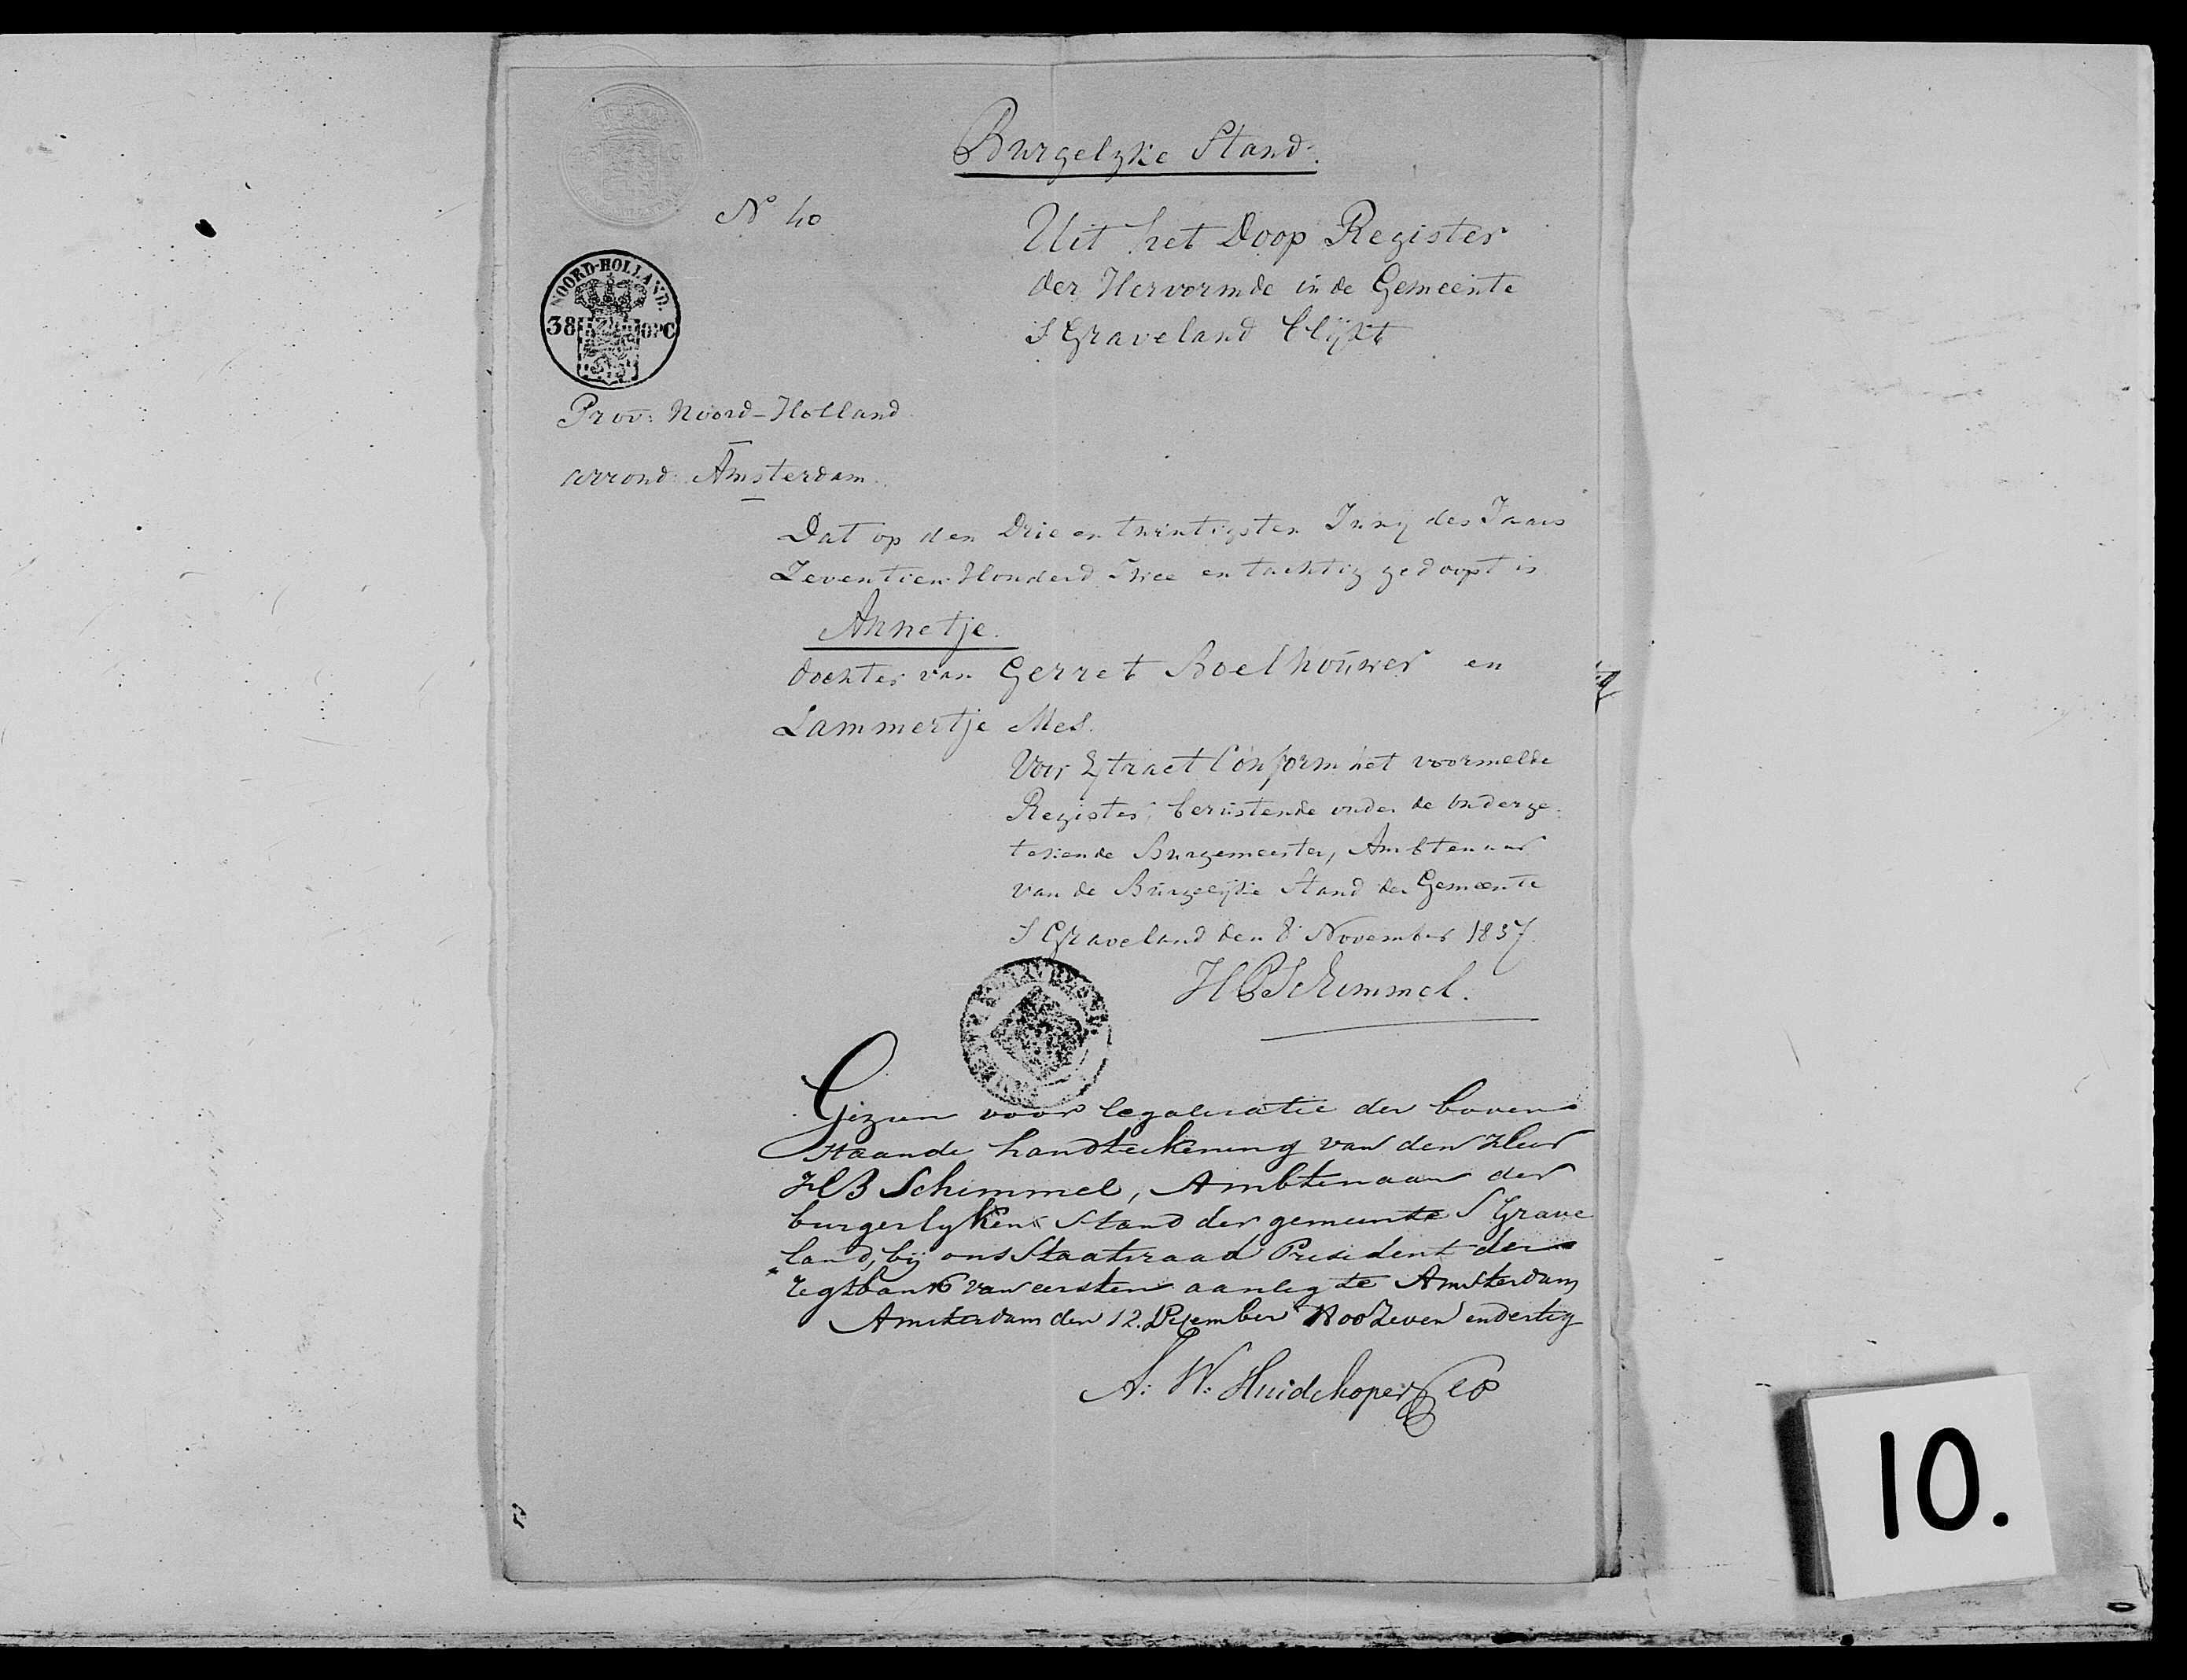 Burgelyke Stand.
No 40
Uit het Doop Register
der Hervormde in de Gemeente
S Graveland blijkt
NOORD-HOLLAND.
38 OPC
Prov: Noord-Holland
arrond: Amsterdam.
Dat op den Drie en twintigsten Juny des Jaars
Zeventien Honderd Twee en tachtig gedoopt is
Annetje.
dochter van Gerret Boelhouwer en
Lammertje Mes.
Voor Extract Conform het voormelde
Register, berustende onder de onderge-
tekende Burgemeester, Ambtenaar
van de Burgelijke Stand der Gemeente
S Graveland den 8 November 1837.
HB Schimmel.
Gezien voor legalisatie der boven
staande handteekening van den Heer
HB Schimmel, Ambtenaar der
burgerlyken Stand der gemeente S Grave
land, bij ons Staatsraad President der
regtbank van eersten aanleg te Amsterdam
Amsterdam den 12. December 1800 Zeven en dertig
A: W: Huidekoper
10.